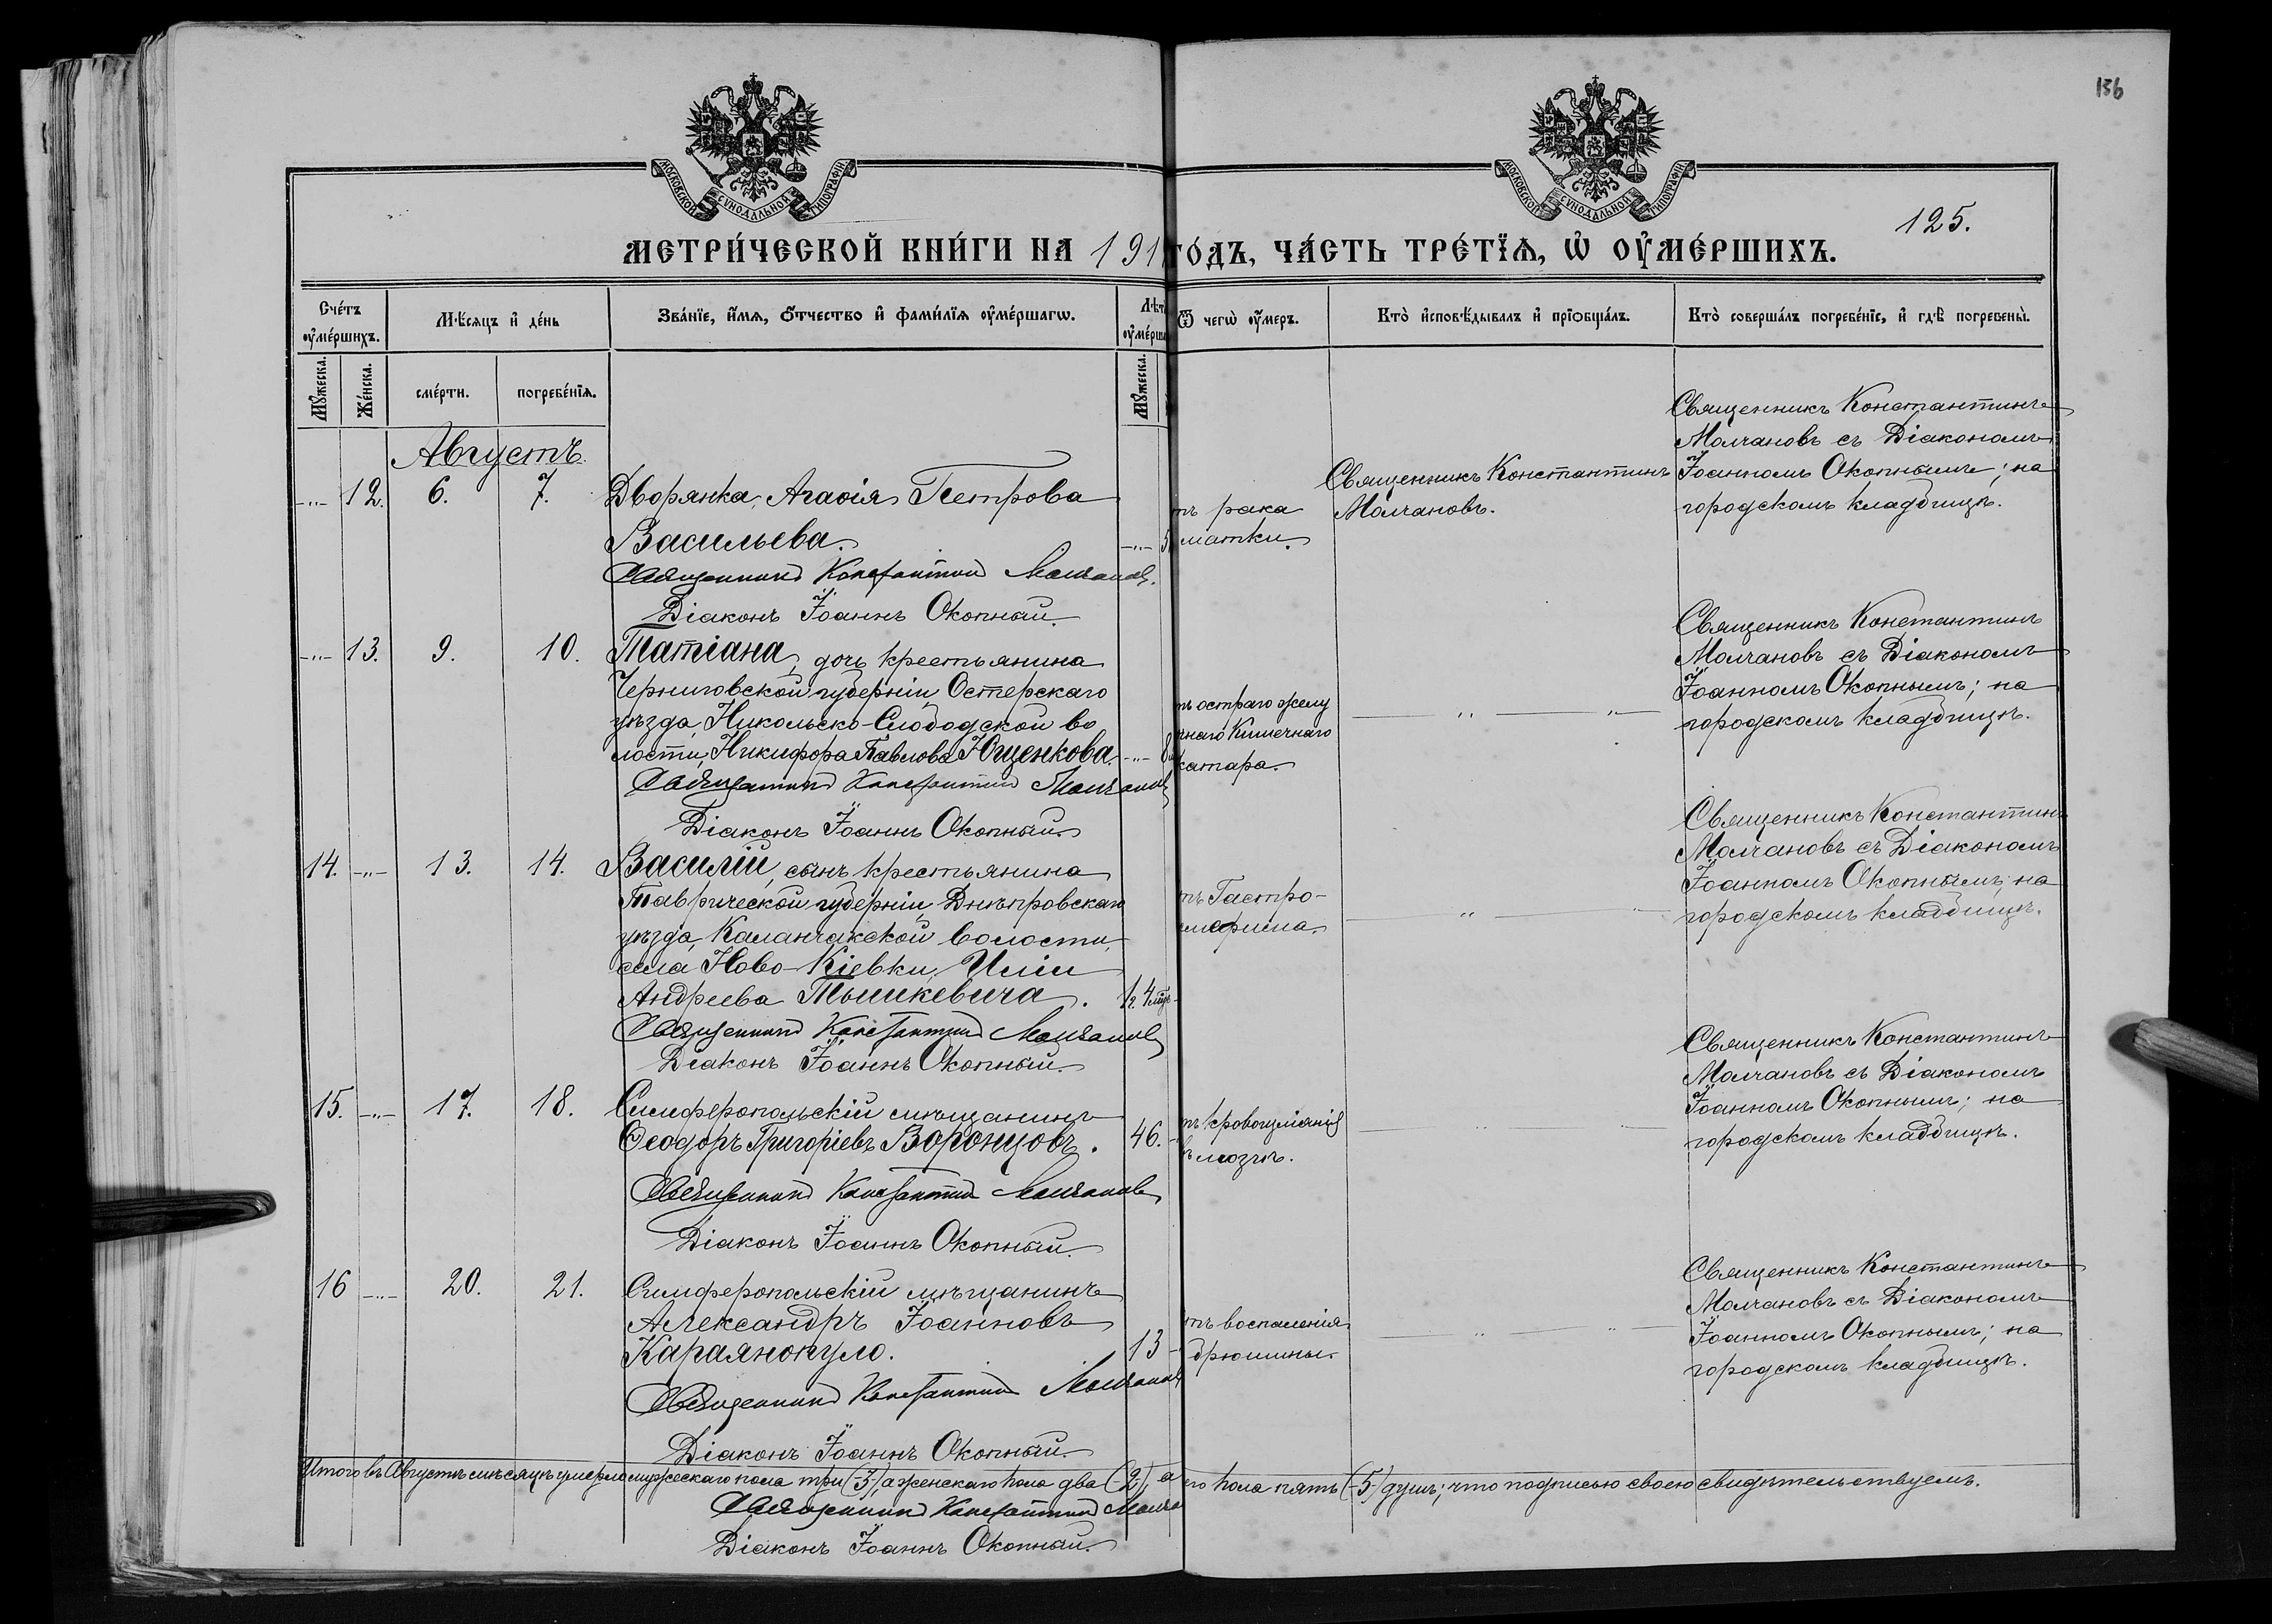 156
МОСКОВСКОЙ СѴНОДАЛЬНОЙ ТИПОГРАФІИ
МОСКОВСКОЙ СѴНОДАЛЬНОЙ ТИПОГРАФІИ
125.
МЕТРИ́ЧЕСКОЙ КНИ́ГИ НА 191 ГО́ДЪ, ЧА́СТЬ ТРЕ́ТЇѦ, Ѡ҆ ОУ҆МЕ́РШИХЪ.
Сче́тъ оу҆ме́ршихъ.
Мѣ́сяцъ и҆ де́нь
Зва́нїе, и҆́мѧ, ѻ҆́тчество и҆ фами́лїѧ оу҆ме́ршагѡ.
Лѣт
оу҆ме́рш
Ѿ чегѡ̀ оу҆́меръ.
Кто̀ и҆сповѣ́дывалъ и҆ прїѡбща́лъ.
Кто̀ соверша́лъ погребе́нїе, и҆ гдѣ̀ погребены̀.
Мꙋ́жеска.
Же́нска.
сме́рти.
погребе́нїѧ.
Мꙋ́жеска.
Августъ.
-"- 12. 6. 7. Дворянка, Агафія Петрова
Васильева. -"- 5
Священникъ Константинъ Молчановъ.
Діаконъ Іоаннъ Окопный.
тъ рака
матки.
Священникъ Константинъ
Молчановъ.
Священникъ Константинъ
Молчановъ съ Діакономъ
Іоанномъ Окопнымъ; на
городскомъ кладбищѣ.
-"- 13. 9. 10. Татіана, дочь крестьянина
Черниговской губерніи, Остерскаго
уѣзда, Никольско-Слободской во
лости, Никифора Павлова Ющенкова. -"-
Священникъ Константинъ Молчановъ
Діаконъ Іоаннъ Окопный.
тъ остраго желу
чнаго Кишечнаго
катара.
-"- -"-
Священникъ Константинъ
Молчановъ съ Діакономъ
Іоанномъ Окопнымъ; на
городскомъ кладбищѣ.
14. -"- 13. 14. Василій, сынъ крестьянина
Таврической губерніи, Днѣпровскаго
уѣзда, Каланчакской волости,
села Ново-Кіевки, Иліи
Андреева Тышкевича.
Священникъ Константинъ Молчановъ
Діаконъ Іоаннъ Окопный.
тъ Гастро-
-"-
Священникъ Константинъ
Молчановъ съ Діакономъ
Іоанномъ Окопнымъ; на
городскомъ кладбищѣ.
15. -"- 17. 18. Симферопольскій мѣщанинъ
Ѳеодоръ Григоріевъ Воронцовъ. 46.
Священникъ Константинъ Молчановъ
Діаконъ Іоаннъ Окопный.
тъ кровоизліянія
въ мозгъ.
-"-
Священникъ Константинъ
Молчановъ съ Діакономъ
Іоанномъ Окопнымъ; на
городскомъ кладбищѣ.
16 -"- 20. 21. Симферопольскій мѣщанинъ
Александръ Іоанновъ
Караянопуло. 13
Священникъ Константинъ Молчановъ
Діаконъ Іоаннъ Окопный.
тъ воспаленія
брюшины.
-"- -"-
Священникъ Константинъ
Молчановъ съ Діакономъ
Іоанномъ Окопнымъ; на
городскомъ кладбищѣ.
Итого въ Августѣ мѣсяцѣ умерло мужескаго пола три (-3-), а женскаго пола два (2), а го пола пять (-5-) душъ; что подписью своею свидѣтельствуемъ.
Священникъ Константинъ Молча
Діаконъ Іоаннъ Окопный.